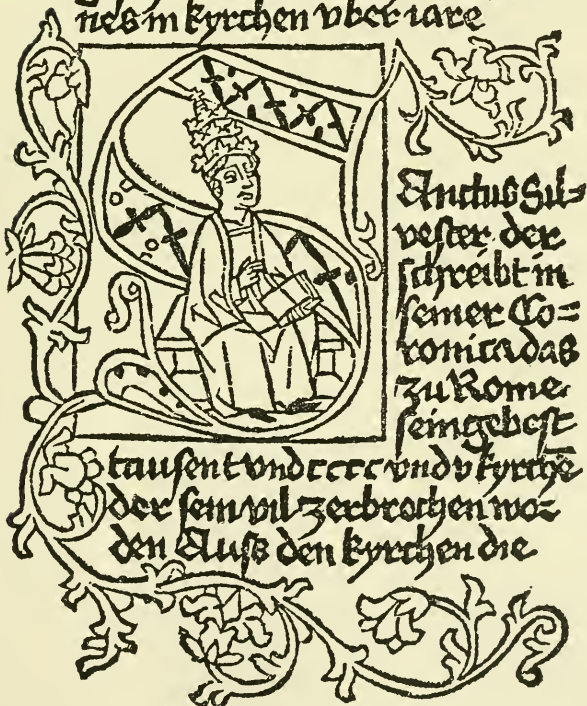 nes in kyrchen vber iare
SAnctus Sil=
vester der
schreibt in
seiner Co=
ronica das
zu Rome
sein gebest
tausent vnd cccc vnd v kyrche
der sein vil zerbrochen wor
den Auß den kyrchen die